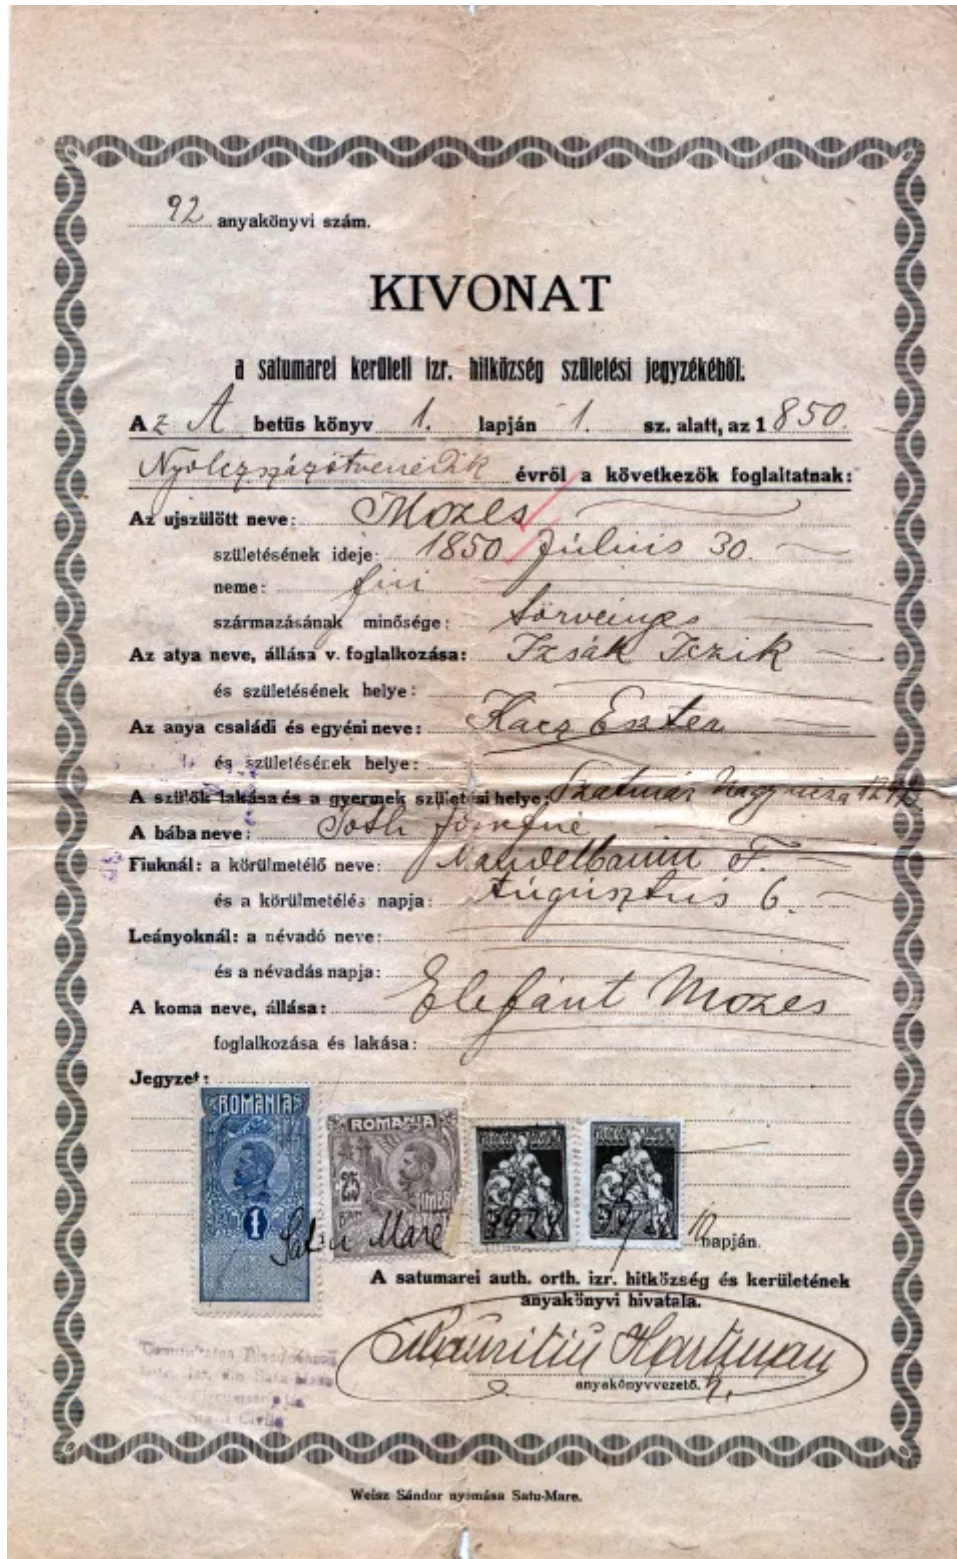 92 anyakönyvi szám.
KIVONAT
a satumarei kerületi izr. hitközség születési jegyzékéből.
Az A betüs könyv 1. lapján 1. sz. alatt, az 1850.
Nyolczszázötvenedik évről a következők foglaltatnak:
Az ujszülött neve: Mozes
születésének ideje: 1850 Július 30.
neme: fiú
származásának minősége: törvényes
Az atya neve, állása v. foglalkozása: Izsák Iczik
és születésének helye:
Az anya családi és egyéni neve: Kacz Eszter
és születésének helye:
A szülők lakása és a gyermek születési helye: Szatmár Nagy
A bába neve: Toth Józsefné
Fiuknál: a körülmetélő neve: Mandelbaum F.
és a körülmetélés napja: Augusztus 6.
Leányoknál: a névadó neve:
és a névadás napja:
A koma neve, állása: Elefánt Mozes
foglalkozása és lakása:
Jegyzet:
ROMANIA
1
ROMANIA
25
BANI
TIMBRU
Satu Mare
napján.
A satumarei auth. orth. izr. hitközség és kerületének
anyakönyvi hivatala.
Mauritiu Hartman
anyakönyvvezető.
Weisz Sándor nyomása Satu-Mare.